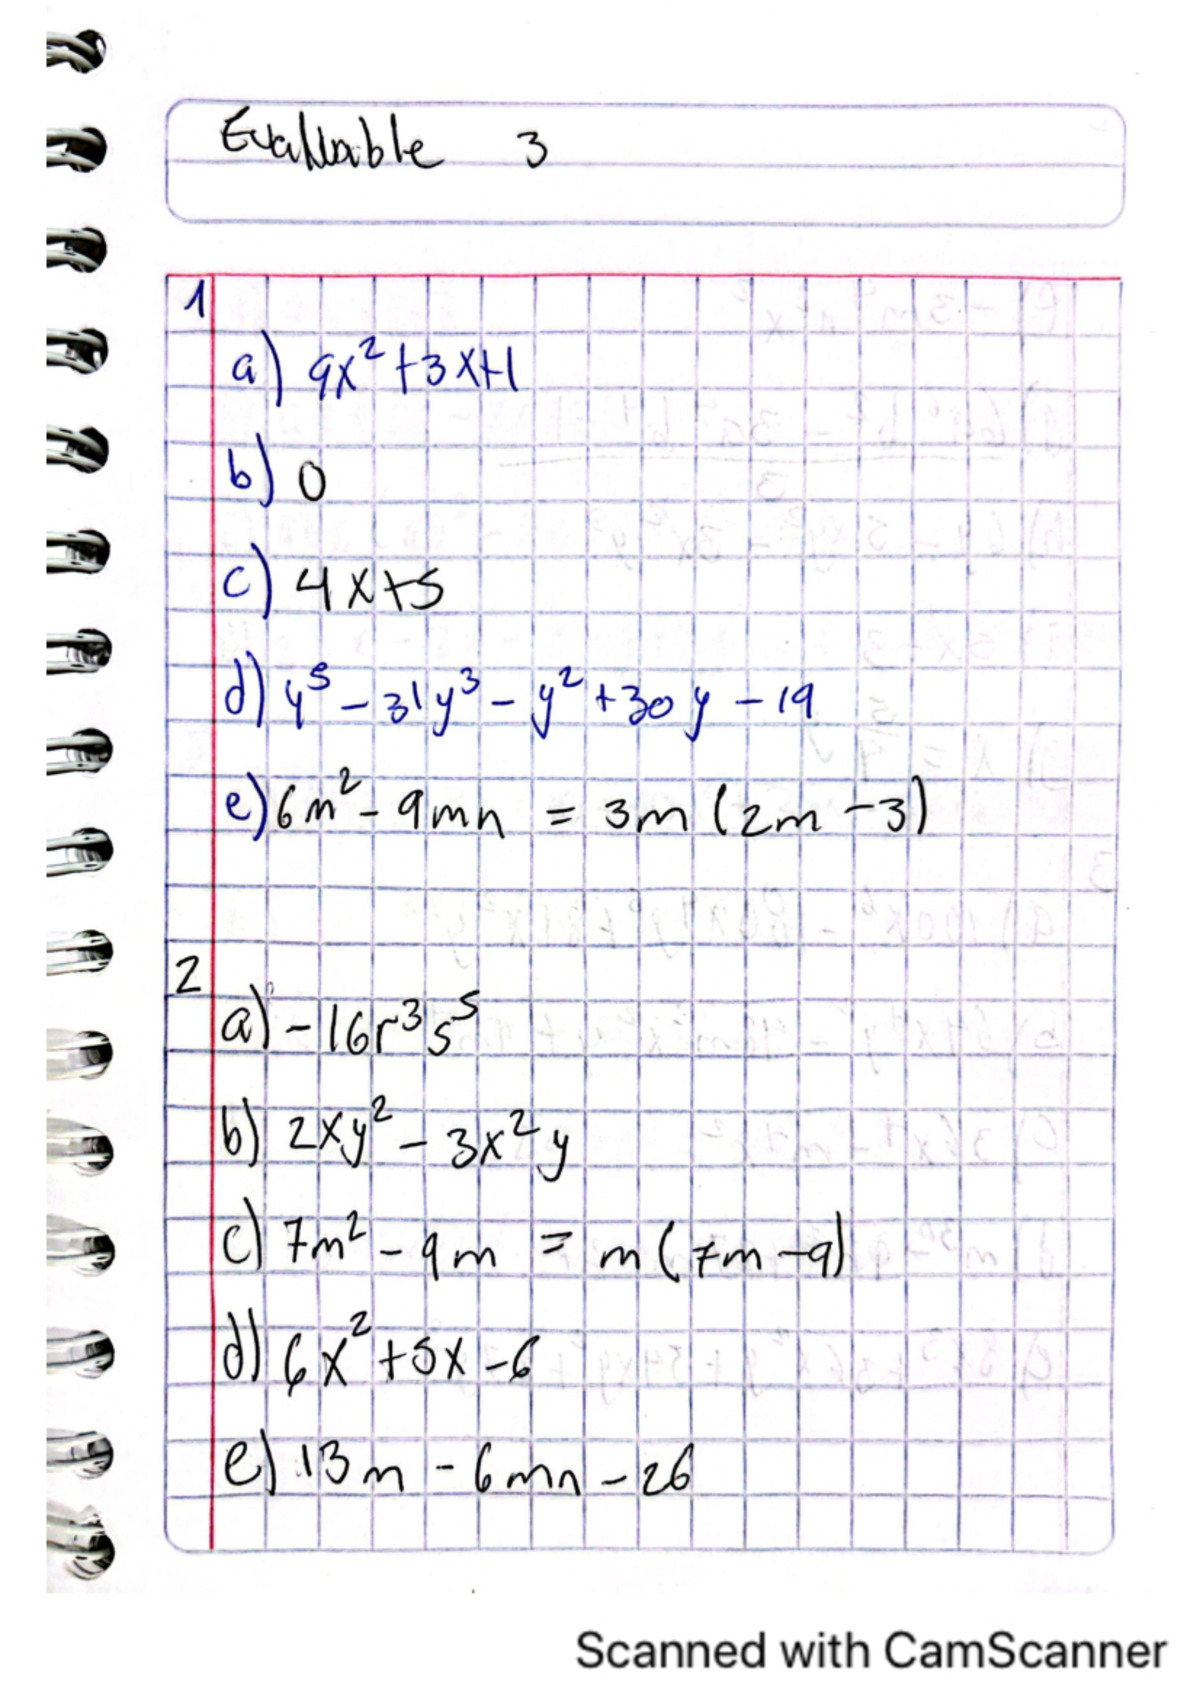 Evaluable 3
1
a) 9x² + 3x + 1
b) 0
c) 4x + 5
d) y⁵ - 31y³ - y² + 30y - 19
e) 6m² - 9mn = 3m (2m - 3)
2
a) - 16r³s⁵
b) 2xy² - 3x²y
c) 7m² - 9m = m (7m - 9)
d) 6x² + 5x - 6
e) 13m - 6mn - 26
Scanned with CamScanner